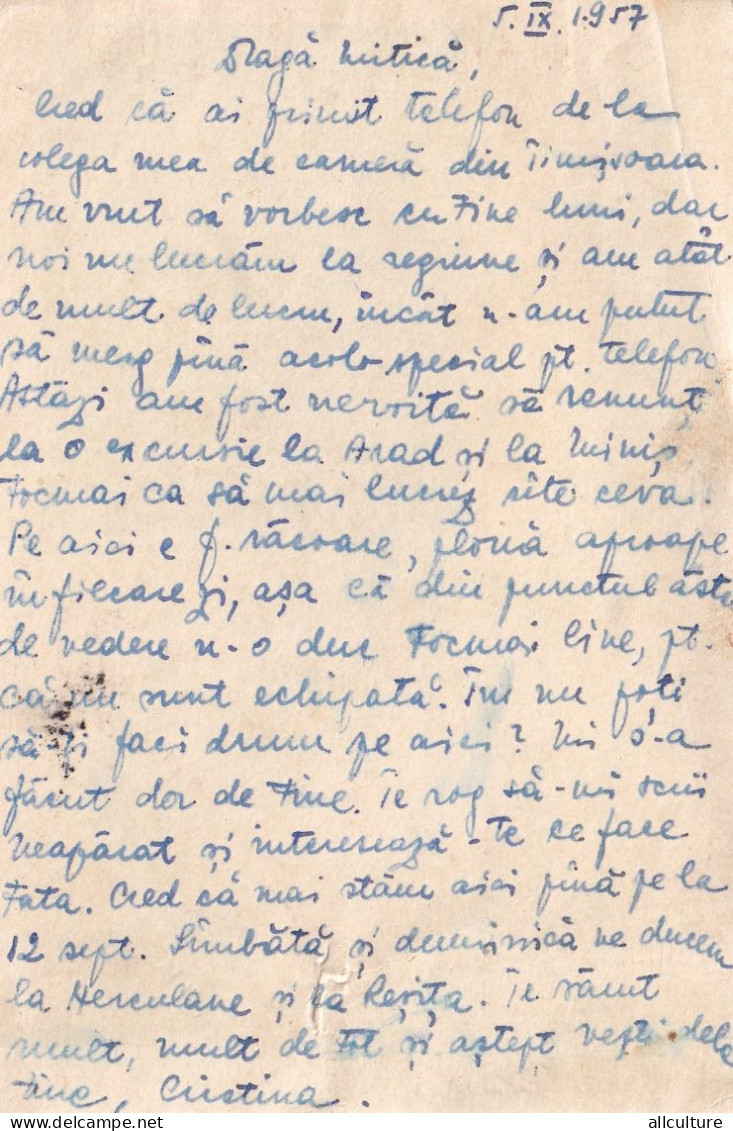 5. IX. 1957
Dragă Mitică,
Cred că ai primit telefon de la
colega mea de cameră din Timișoara.
Am vrut să vorbesc cu tine luni, dar
noi nu lucrăm la regiune și am atât
de mult de lucru, încât n-am putut
să merg pînă acolo special pt. telefon
Astăzi am fost nevoită să renunț
la o excursie la Arad și la Miniș,
tocmai ca să mai lucrez cîte ceva.
Pe aici e f. răcoare, plouă aproape
în fiecare zi, așa că din punctul ăsta
de vedere n-o duc tocmai bine, pt.
că nu sunt echipată. Tu nu poți
să-ți faci drum pe aici? Mi s-a
făcut dor de tine. Te rog să-mi scrii
neapărat și interesează-te ce face
Tata. Cred că mai stăm aici pînă pe la
12 sept. Sîmbătă și duminică ne ducem
la Herculane și la Reșița. Te sărut
mult, mult de tot și aștept vești dela
tine, Cristina.
allculture